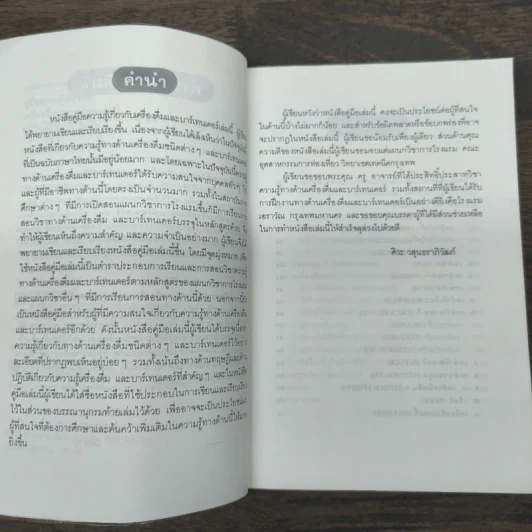 คำนำ
หนังสือคู่มือความรู้เกี่ยวกับเครื่องดื่มและบาร์เทนเดอร์เล่มนี้ ผู้เขียน
ได้พยายามเขียนและเรียบเรียงขึ้น เนื่องจากผู้เขียนได้เล็งเห็นว่าในปัจจุบัน
หนังสือที่เกี่ยวกับความรู้ทางด้านเครื่องดื่มชนิดต่าง ๆ และบาร์เทนเดอร์
ที่เป็นฉบับภาษาไทยนั้นมีอยู่น้อยมาก และโดยเฉพาะในปัจจุบันนี้
ทางด้านเครื่องดื่มและบาร์เทนเดอร์ได้รับความสนใจจากบุคคลต่าง ๆ
และผู้ที่มีอาชีพทางด้านนี้โดยตรงเป็นจำนวนมาก รวมทั้งในสถาบันการ
ศึกษาต่าง ๆ ที่มีการเปิดสอนแผนกวิชาการโรงแรมขึ้นก็มีการเรียนการ
สอนวิชาทางด้านเครื่องดื่ม และบาร์เทนเดอร์บรรจุในหลักสูตรด้วย จึง
ทำให้ผู้เขียนเห็นถึงความสำคัญ และความจำเป็นอย่างมาก ผู้เขียนจึง
พยายามเขียนและเรียบเรียงหนังสือคู่มือนี้ขึ้น โดยมีจุดมุ่งหมาย
ใช้หนังสือคู่มือเล่มนี้เป็นตำราประกอบการเรียนและการสอนวิชาความรู้
ทางด้านเครื่องดื่มและบาร์เทนเดอร์ตามหลักสูตรของแผนกวิชาการโรงแรม
และแผนกวิชาอื่น ๆ ที่มีการเรียนการสอนทางด้านนี้ด้วย นอกจากนี้
เป็นหนังสือคู่มือสำหรับผู้ที่มีความสนใจเกี่ยวกับความรู้ทางด้านเครื่องดื่ม
และบาร์เทนเดอร์อีกด้วย ดังนั้นหนังสือคู่มือเล่มนี้ผู้เขียนได้บรรจุเนื้อหา
ความรู้เกี่ยวกับเครื่องดื่มชนิดต่าง ๆ และบาร์เทนเดอร์ไว้อย่าง
ละเอียดที่ปรากฏพบเห็นอยู่บ่อย ๆ รวมทั้งเน้นถึงทางด้านทฤษฎีและด้าน
ปฏิบัติเกี่ยวกับความรู้เครื่องดื่ม และบาร์เทนเดอร์ที่สำคัญๆ และในหนังสือ
คู่มือเล่มนี้ผู้เขียนได้ใส่ชื่อหนังสือที่ใช้ประกอบในการเขียนและเรียบเรียง
ไว้ในส่วนของบรรณานุกรมท้ายเล่มไว้ด้วย เพื่ออาจจะเป็นประโยชน์แก่
ผู้ที่สนใจที่ต้องการศึกษาและค้นคว้าเพิ่มเติมในความรู้ทางด้านนี้ให้มาก
ยิ่งขึ้น
ผู้เขียนหวังว่าหนังสือคู่มือเล่มนี้ คงจะเป็นประโยชน์ต่อผู้ที่สนใจ
ในด้านนี้บ้างไม่มากก็น้อย และสำหรับข้อผิดพลาดหรือข้อบกพร่องที่อาจ
จะปรากฏในหนังสือเล่มนี้ ผู้เขียนขอน้อมรับเพียงผู้เดียว ส่วนด้านคุณ
ความดีของหนังสือคู่มือเล่มนี้ ผู้เขียนขอมอบแด่แผนกวิชาการโรงแรม คณะ
อุตสาหกรรมการท่องเที่ยว วิทยาเขตเทคนิคกรุงเทพ
ผู้เขียนขอขอบพระคุณ ครู อาจารย์ที่ได้ประสิทธิ์ประสาทวิชา
ความรู้ทางด้านเครื่องดื่มและบาร์เทนเดอร์ รวมทั้งสถานที่ที่ผู้เขียนได้รับ
การฝึกงานทางด้านเครื่องดื่มและบาร์เทนเดอร์เป็นอย่างดียิ่งคือโรงแรม
เอราวัณ กรุงเทพมหานคร และขอขอบคุณบรรดาผู้ที่ได้มีส่วนช่วยเหลือ
ในการทำหนังสือเล่มนี้ให้สำเร็จลุล่วงไปด้วยดี
ศิวะ วสุนธราภิวัฒก์